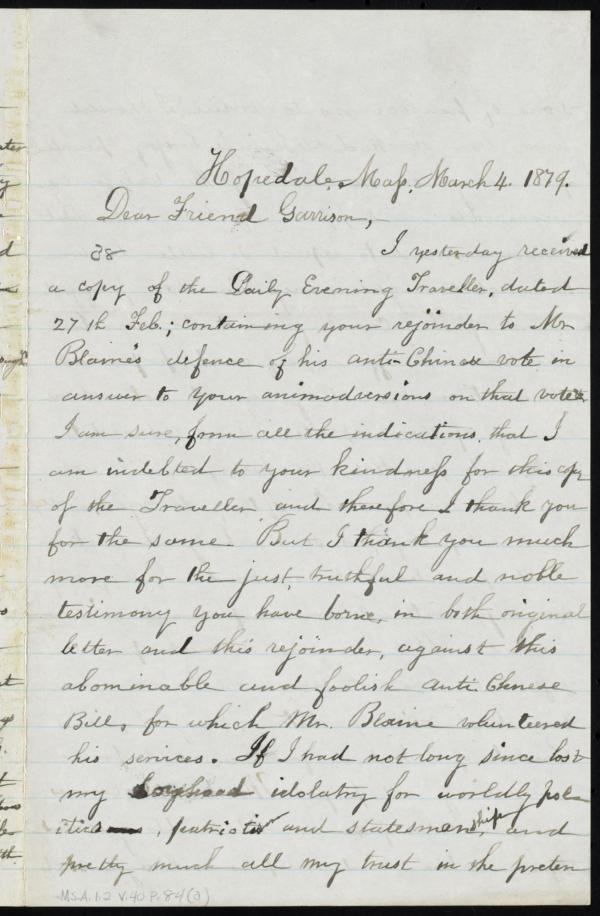 Hopedale, Mass, March 4. 1879.
Dear Friend Garrison,-
38 I yesterday received
a copy of the Daily Evening Traveller, dated
27th Feb.; containing your rejoinder to Mr
Blaine's defence of his anti-Chinese vote in
answer to your animadversions on that vote.
I am sure, from all the indications, that I
am indebted to your kindness for this copy
of the Traveller and therefore I thank you
for the same. But I thank you much
more for the just, truthful and noble
testimony you have borne, in both original
letter and this rejoinder, against this
abominable and foolish anti Chinese
Bill, for which Mr. Blaine volunteered
his services. If I had not long since lost
my boyhood idolatry for worldly pol-
itics, patriotism and statesmanship, and
pretty much all my trust in the preten
MS.A.1.2 V.40 P.84(a)